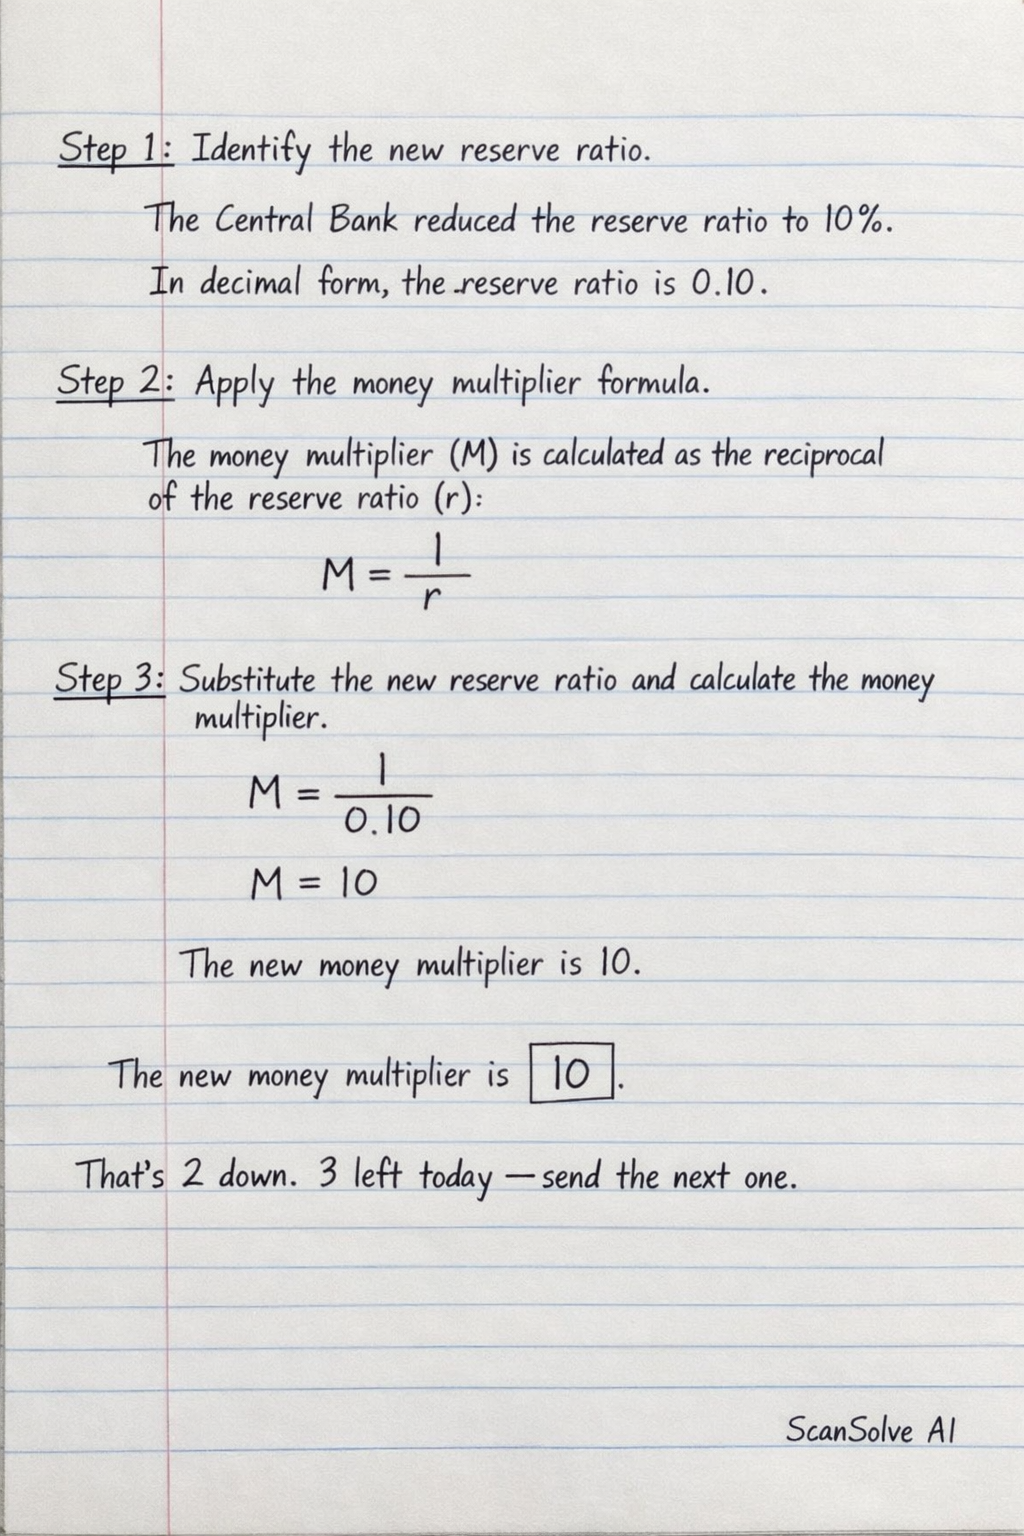 Step 1: Identify the new reserve ratio.
The Central Bank reduced the reserve ratio to 10%.
In decimal form, the reserve ratio is 0.10.
Step 2: Apply the money multiplier formula.
The money multiplier (M) is calculated as the reciprocal
of the reserve ratio (r):
M = 1/r
Step 3: Substitute the new reserve ratio and calculate the money
multiplier.
M = 1/0.10
M = 10
The new money multiplier is 10.
The new money multiplier is 10.
That's 2 down. 3 left today — send the next one.
ScanSolve AI